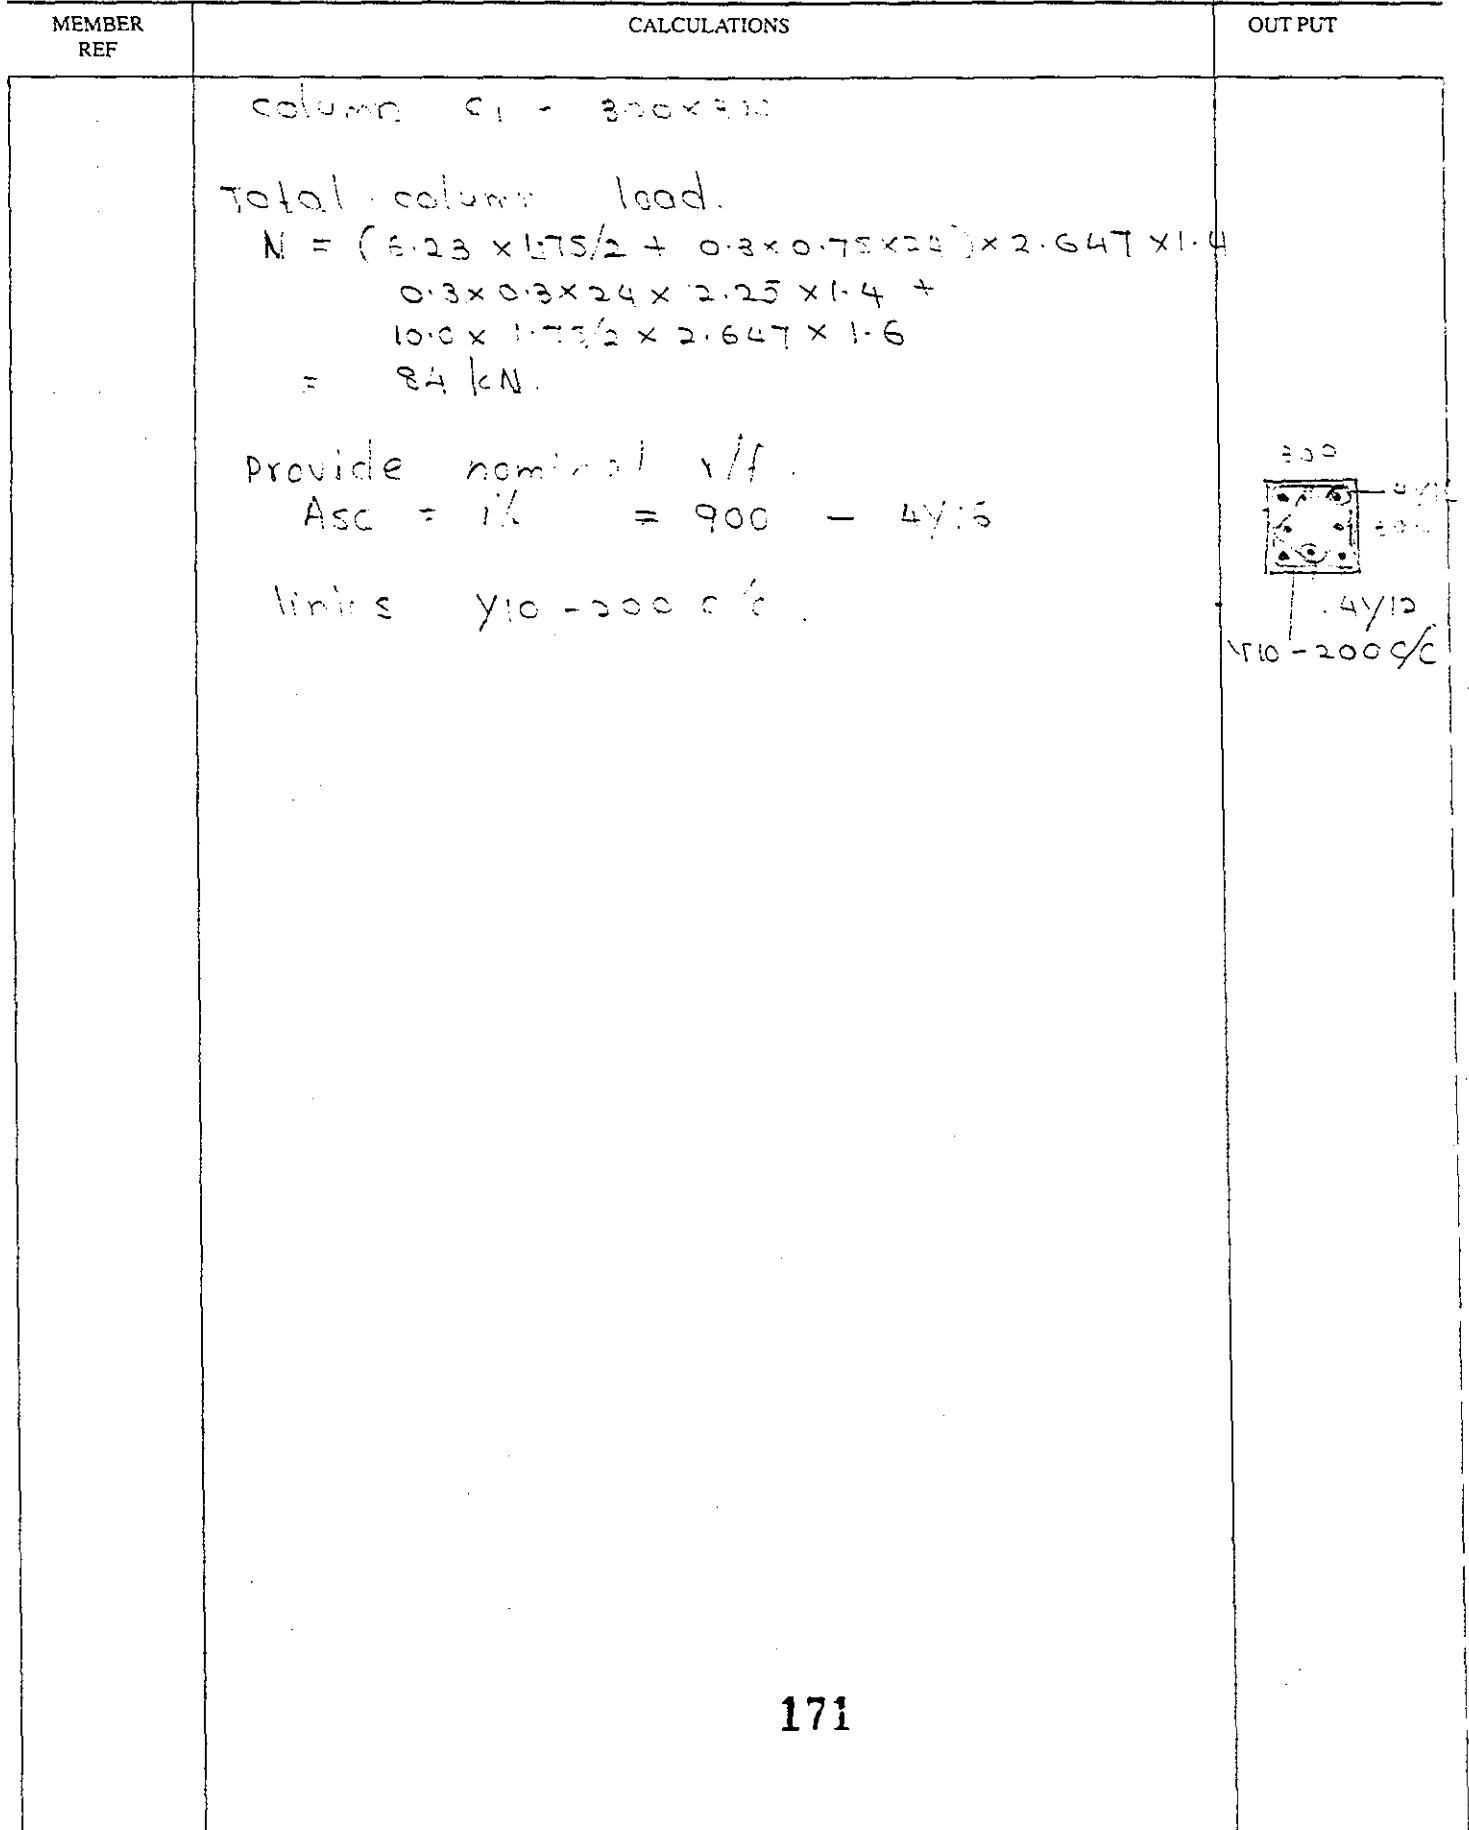 MEMBER REF
CALCULATIONS
OUT PUT
column C1 - 300×300
Total column load.
N = (6.23 × 1.75/2 + 0.3×0.75×24)×2.647×1.4
0.3×0.3×24× 2.25×1.4 +
10.0× 1.75/2 × 2.647 × 1.6
= 84 kN.
Provide nominal r/f.
Asc = 1% = 900 - 4Y16
links Y10-200 c/c.
300
4Y16
300
4Y12
Y10-200 c/c
171